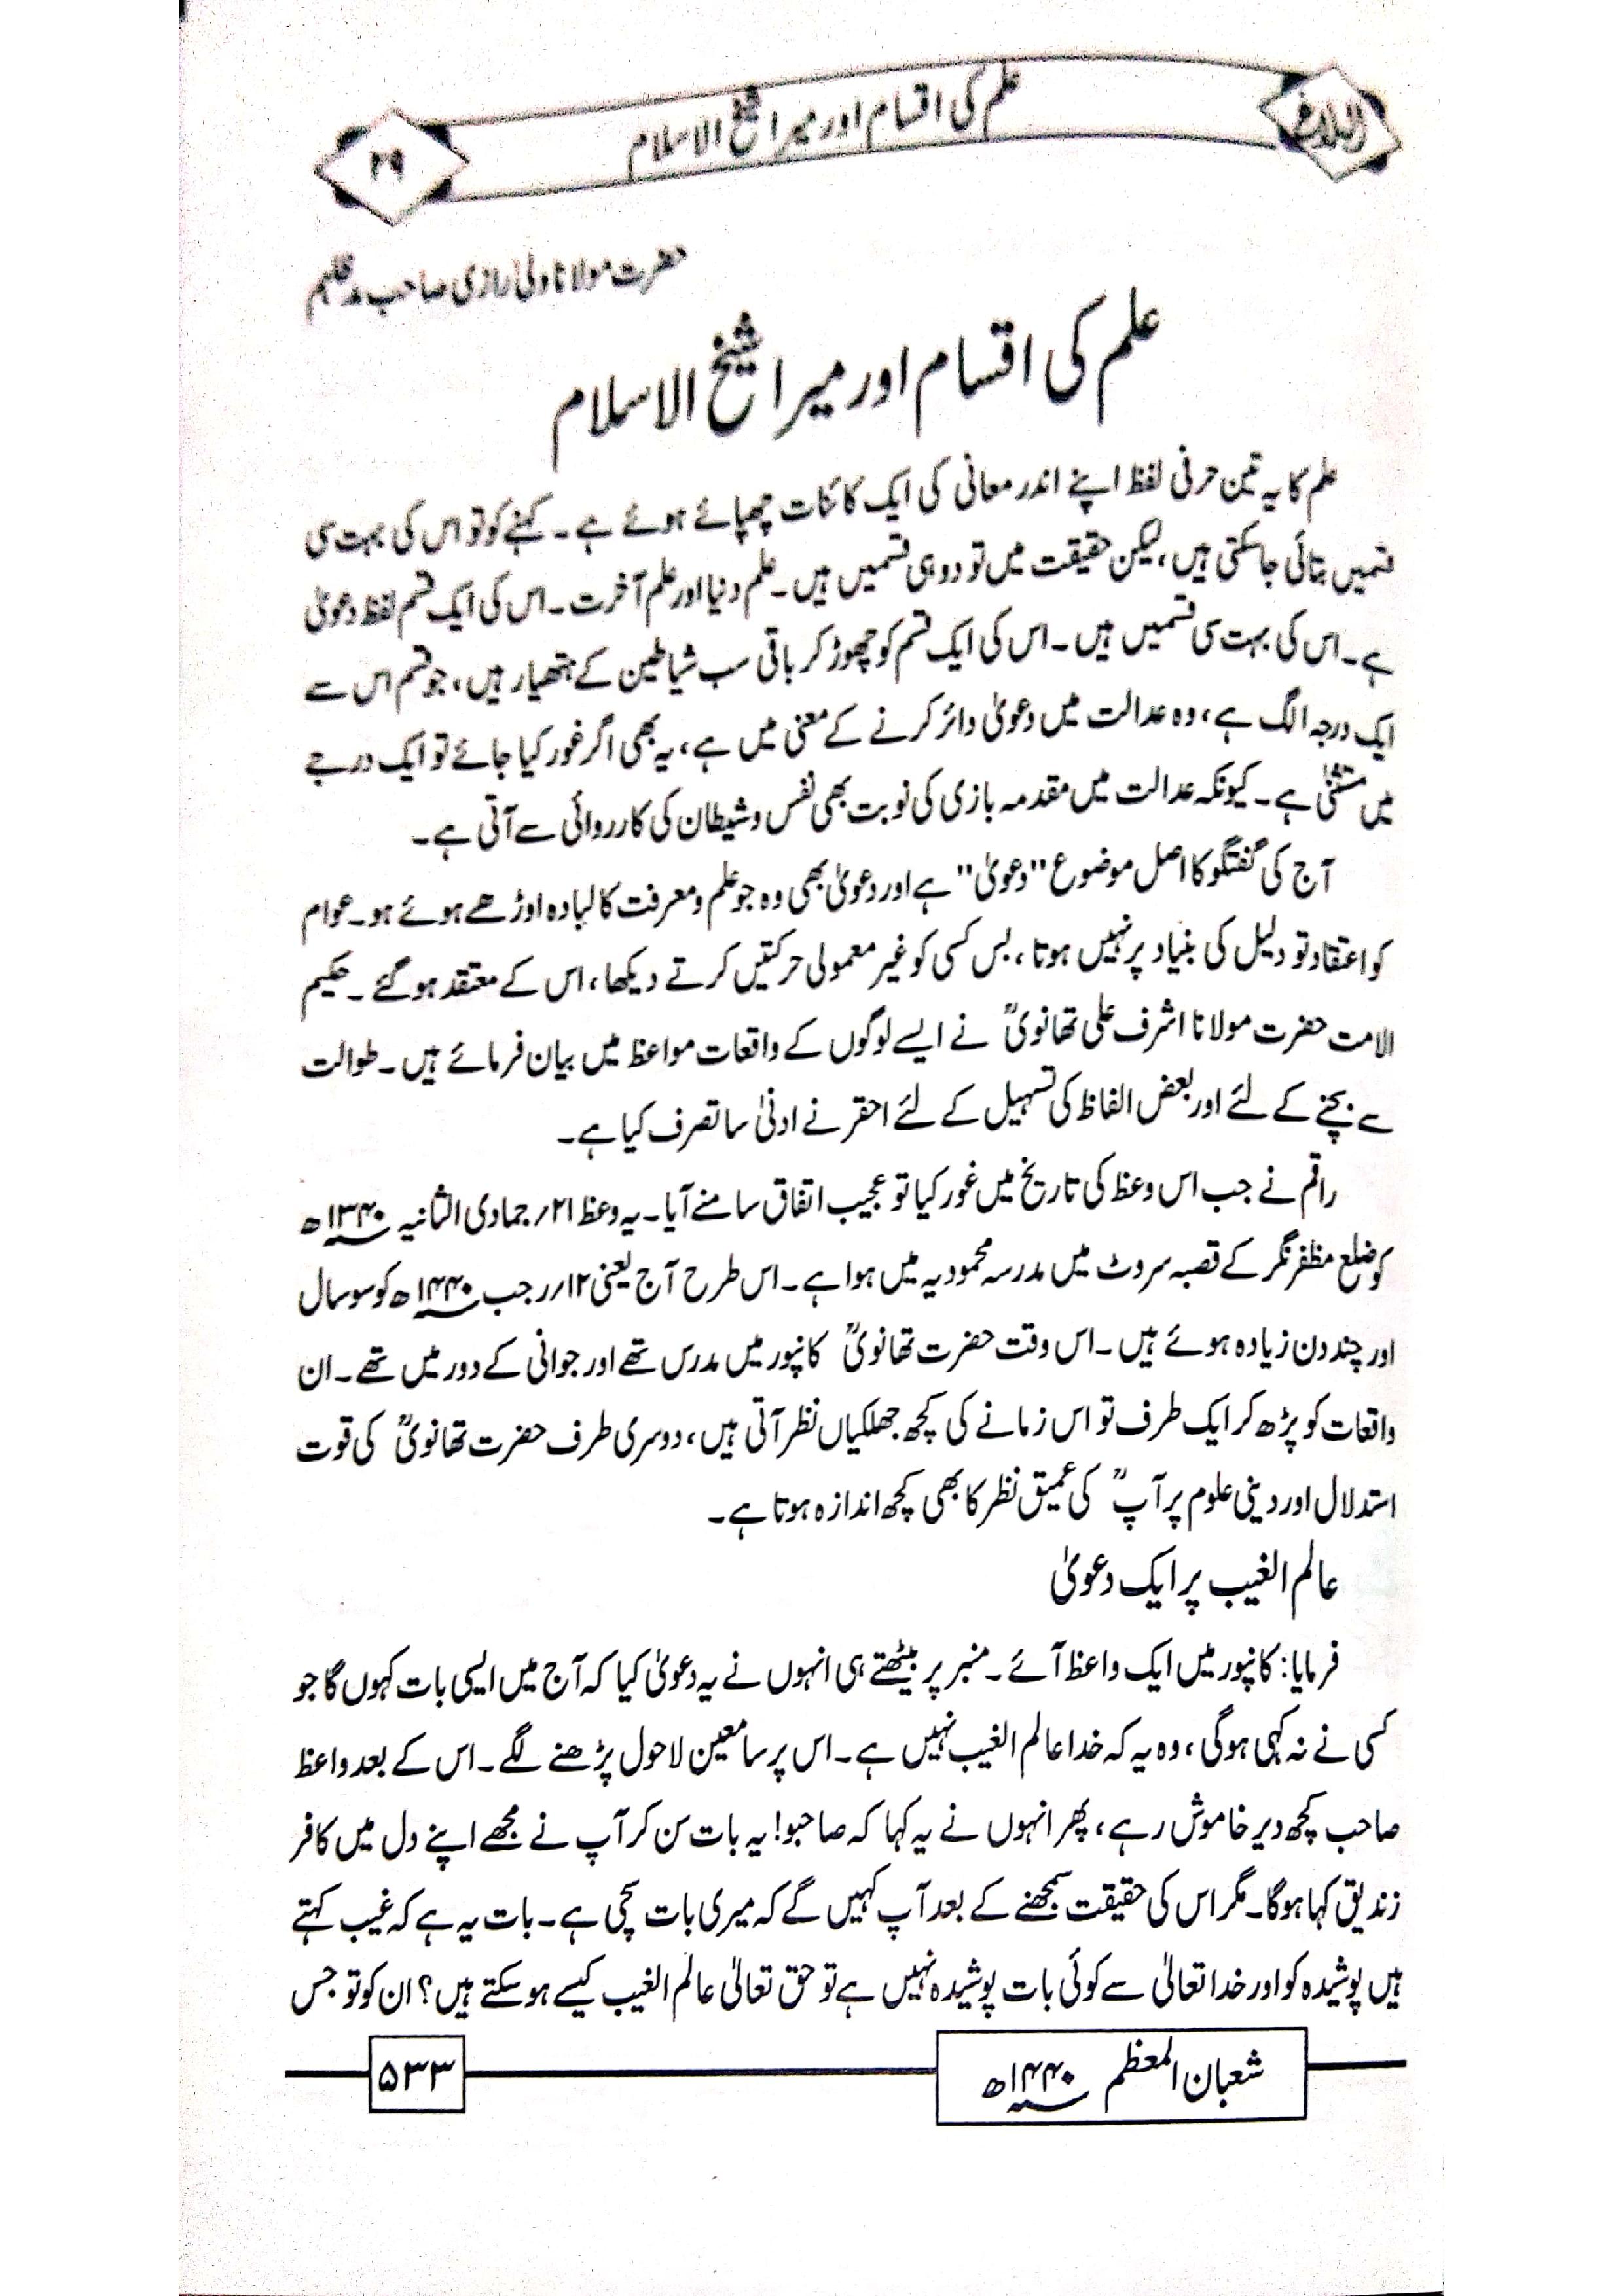 البلاغ
علم کی اقسام اور میرا شیخ الاسلام
۲۹
حضرت مولانا ولی رازی صاحب مدظلہم
علم کی اقسام اور میرا شیخ الاسلام
علم کا یہ تین حرفی لفظ اپنے اندر معانی کی ایک کائنات چھپائے ہوئے ہے۔ کہنے کو تو اس کی بہت سی
قسمیں بتائی جاسکتی ہیں، لیکن حقیقت میں تو دو ہی قسمیں ہیں۔ علم دنیا اور علم آخرت۔ اس کی ایک قسم لفظ دعویٰ
ہے۔ اس کی بہت سی قسمیں ہیں۔ اس کی ایک قسم کو چھوڑ کر باقی سب شیاطین کے ہتھیار ہیں، جو قسم اس سے
ایک درجہ الگ ہے، وہ عدالت میں دعویٰ دائر کرنے کے معنی میں ہے، یہ بھی اگر غور کیا جائے تو ایک درجے
میں مستثنیٰ ہے۔ کیونکہ عدالت میں مقدمہ بازی کی نوبت بھی نفس و شیطان کی کارروائی سے آتی ہے۔
آج کی گفتگو کا اصل موضوع "دعویٰ" ہے اور دعویٰ بھی وہ جو علم و معرفت کا لبادہ اوڑھے ہوئے ہو۔ عوام
کو اعتقاد تو دلیل کی بنیاد پر نہیں ہوتا، بس کسی کو غیر معمولی حرکتیں کرتے دیکھا، اس کے معتقد ہوگئے۔ حکیم
الامت حضرت مولانا اشرف علی تھانویؒ نے ایسے لوگوں کے واقعات مواعظ میں بیان فرمائے ہیں۔ طوالت
سے بچنے کے لئے اور بعض الفاظ کی تسہیل کے لئے احقر نے ادنیٰ سا تصرف کیا ہے۔
راقم نے جب اس وعظ کی تاریخ میں غور کیا تو عجیب اتفاق سامنے آیا۔ یہ وعظ ۲۱؍ جمادی الثانیہ ۱۳۴۰ھ
کو ضلع مظفر نگر کے قصبہ سروٹ میں مدرسہ محمودیہ میں ہوا ہے۔ اس طرح آج یعنی ۱۲؍ رجب ۱۴۴۰ھ کو سو سال
اور چند دن زیادہ ہوئے ہیں۔ اس وقت حضرت تھانویؒ کانپور میں مدرس تھے اور جوانی کے دور میں تھے۔ ان
واقعات کو پڑھ کر ایک طرف تو اس زمانے کی کچھ جھلکیاں نظر آتی ہیں، دوسری طرف حضرت تھانویؒ کی قوت
استدلال اور دینی علوم پر آپؒ کی عمیق نظر کا بھی کچھ اندازہ ہوتا ہے۔
عالم الغیب پر ایک دعویٰ
فرمایا: کانپور میں ایک واعظ آئے۔ منبر پر بیٹھتے ہی انہوں نے یہ دعویٰ کیا کہ آج میں ایسی بات کہوں گا جو
کسی نے نہ کہی ہوگی، وہ یہ کہ خدا عالم الغیب نہیں ہے۔ اس پر سامعین لاحول پڑھنے لگے۔ اس کے بعد واعظ
صاحب کچھ دیر خاموش رہے، پھر انہوں نے یہ کہا کہ صاحبو! یہ بات سن کر آپ نے مجھے اپنے دل میں کافر
زندیق کہا ہوگا۔ مگر اس کی حقیقت سمجھنے کے بعد آپ کہیں گے کہ میری بات سچی ہے۔ بات یہ ہے کہ غیب کہتے
ہیں پوشیدہ کو اور خدا تعالیٰ سے کوئی بات پوشیدہ نہیں ہے تو حق تعالیٰ عالم الغیب کیسے ہوسکتے ہیں؟ ان کو تو جس
شعبان المعظم ۱۴۴۰ھ
۵۳۳